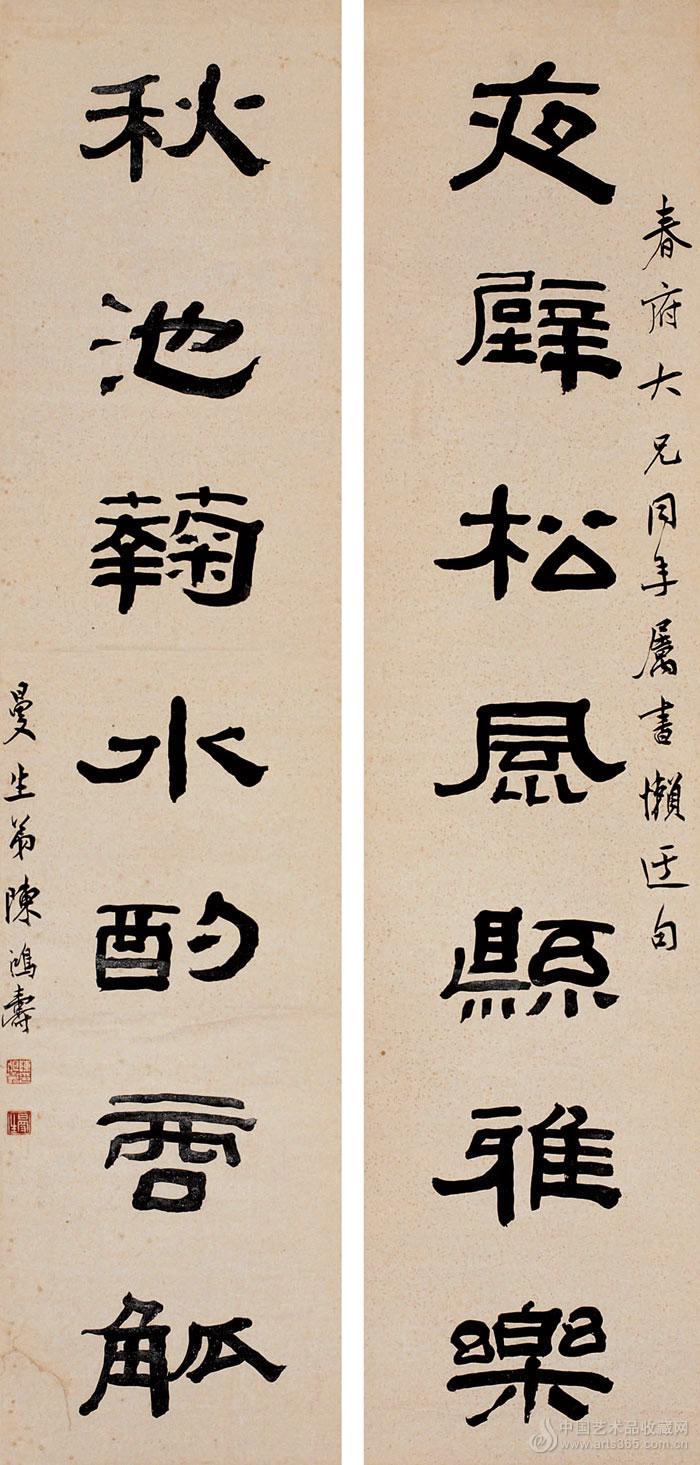 夜壁松風縣雅樂
春府大兄同年屬書懶迂句
秋池鞠水酌商觚
曼生弟陳鴻壽
中国艺术品收藏网
www.arts365.com.cn